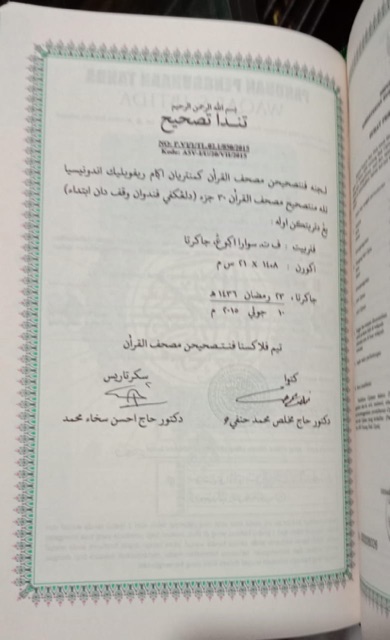 بسم الله الرحمن الرحيم
تندا تصحيح
NO: P.VI/1/TL.02.1/830/2015
Kode: A5V-I/U/20/VII/2015
لجنه فنتصحيحن مصحف القرأن كمنتريان اكام ريفوبليك اندونيسيا
تله منتصحيح مصحف القرأن ٣٠ جزء (دلڠكفي فندوان وقف دان ابتداء)
يڠ دتربتكن اوله :
فنربيت : ف ت. سوارا اكوڠ، جاكرتا
اكورن : ١٤٫٨ X ٢١ س م
جاكرتا، ٢٣ رمضان ١٤٣٦ هـ
١٠ جولي ٢٠١٥ م
تيم فلاكسنا فنتصحيحن مصحف القرأن
كتوا
سكرتاريس
دكتور حاج مخلص محمد حنفي
دكتور حاج احسن سخاء محمد